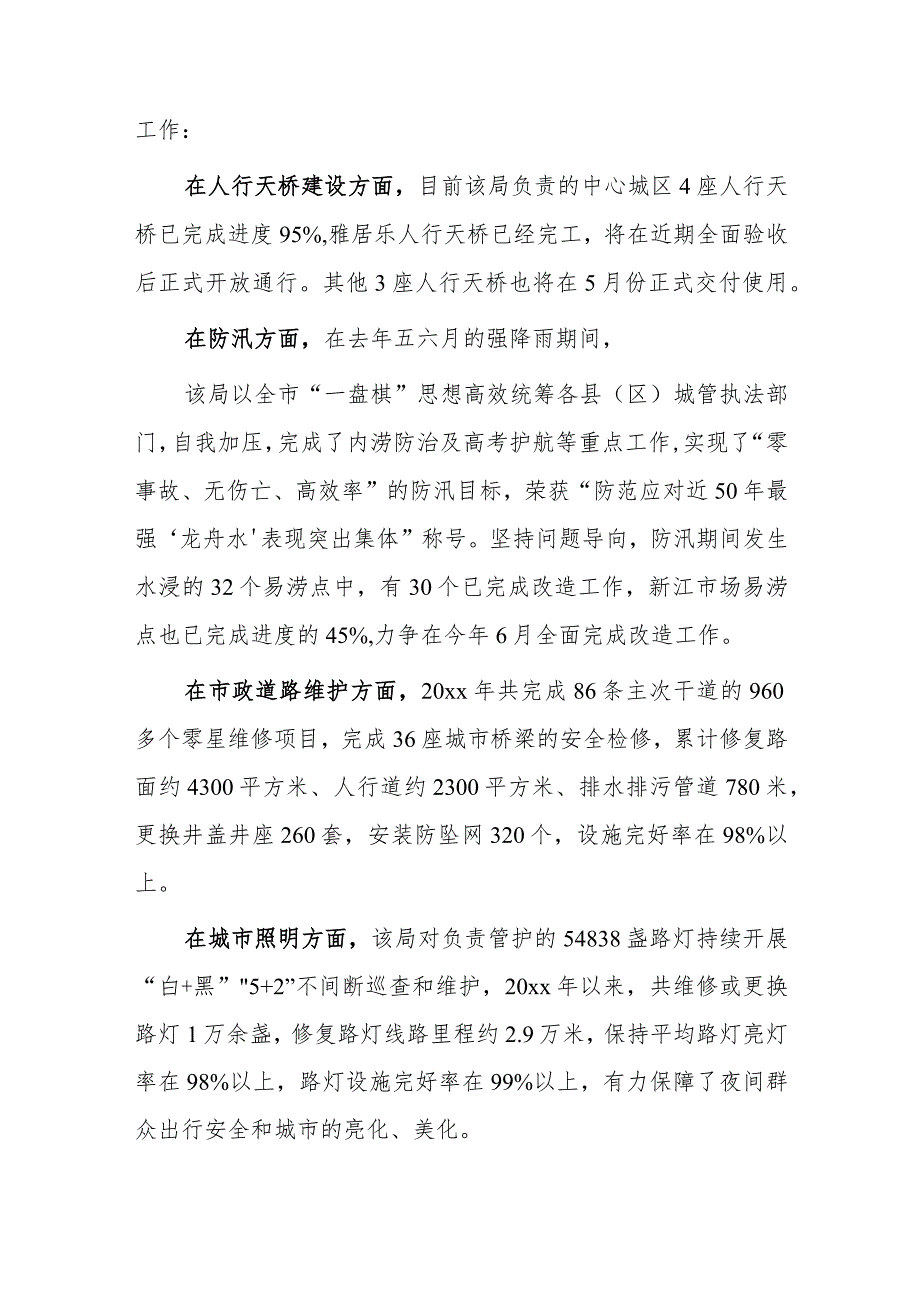 工作：
在人行天桥建设方面，目前该局负责的中心城区 4 座人行天
桥已完成进度 95%,雅居乐人行天桥已经完工，将在近期全面验收
后正式开放通行。其他 3 座人行天桥也将在 5 月份正式交付使用。
在防汛方面，在去年五六月的强降雨期间，
该局以全市“一盘棋”思想高效统筹各县（区）城管执法部
门,自我加压,完成了内涝防治及高考护航等重点工作,实现了“零
事故、无伤亡、高效率”的防汛目标，荣获“防范应对近 50 年最
强‘龙舟水'表现突出集体”称号。坚持问题导向，防汛期间发生
水浸的 32 个易涝点中，有 30 个已完成改造工作，新江市场易涝
点也已完成进度的 45%,力争在今年 6 月全面完成改造工作。
在市政道路维护方面，20xx 年共完成 86 条主次干道的 960
多个零星维修项目，完成 36 座城市桥梁的安全检修，累计修复路
面约 4300 平方米、人行道约 2300 平方米、排水排污管道 780 米，
更换井盖井座 260 套，安装防坠网 320 个，设施完好率在 98%以
上。
在城市照明方面，该局对负责管护的 54838 盏路灯持续开展
“白+黑”"5+2”不间断巡查和维护，20xx 年以来，共维修或更换
路灯 1 万余盏，修复路灯线路里程约 2.9 万米，保持平均路灯亮灯
率在 98%以上，路灯设施完好率在 99%以上，有力保障了夜间群
众出行安全和城市的亮化、美化。